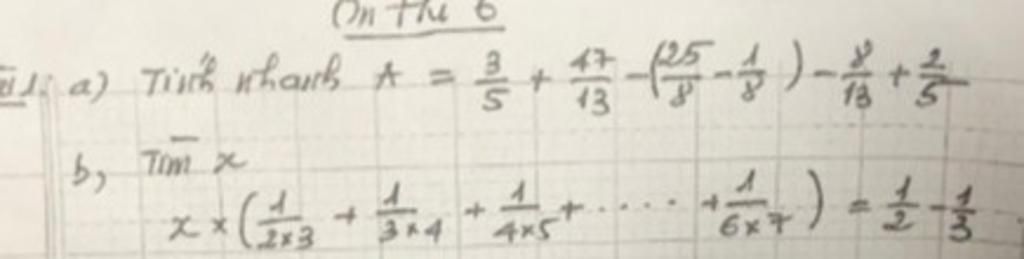 Ôn thứ 6
a) Tính nhanh A = 3/5 + 47/13 - (25/8 - 1/8) - 8/13 + 2/5
b, Tìm x
x × (1/2×3 + 1/3×4 + 1/4×5 + ..... + 1/6×7) = 1/2 - 1/3